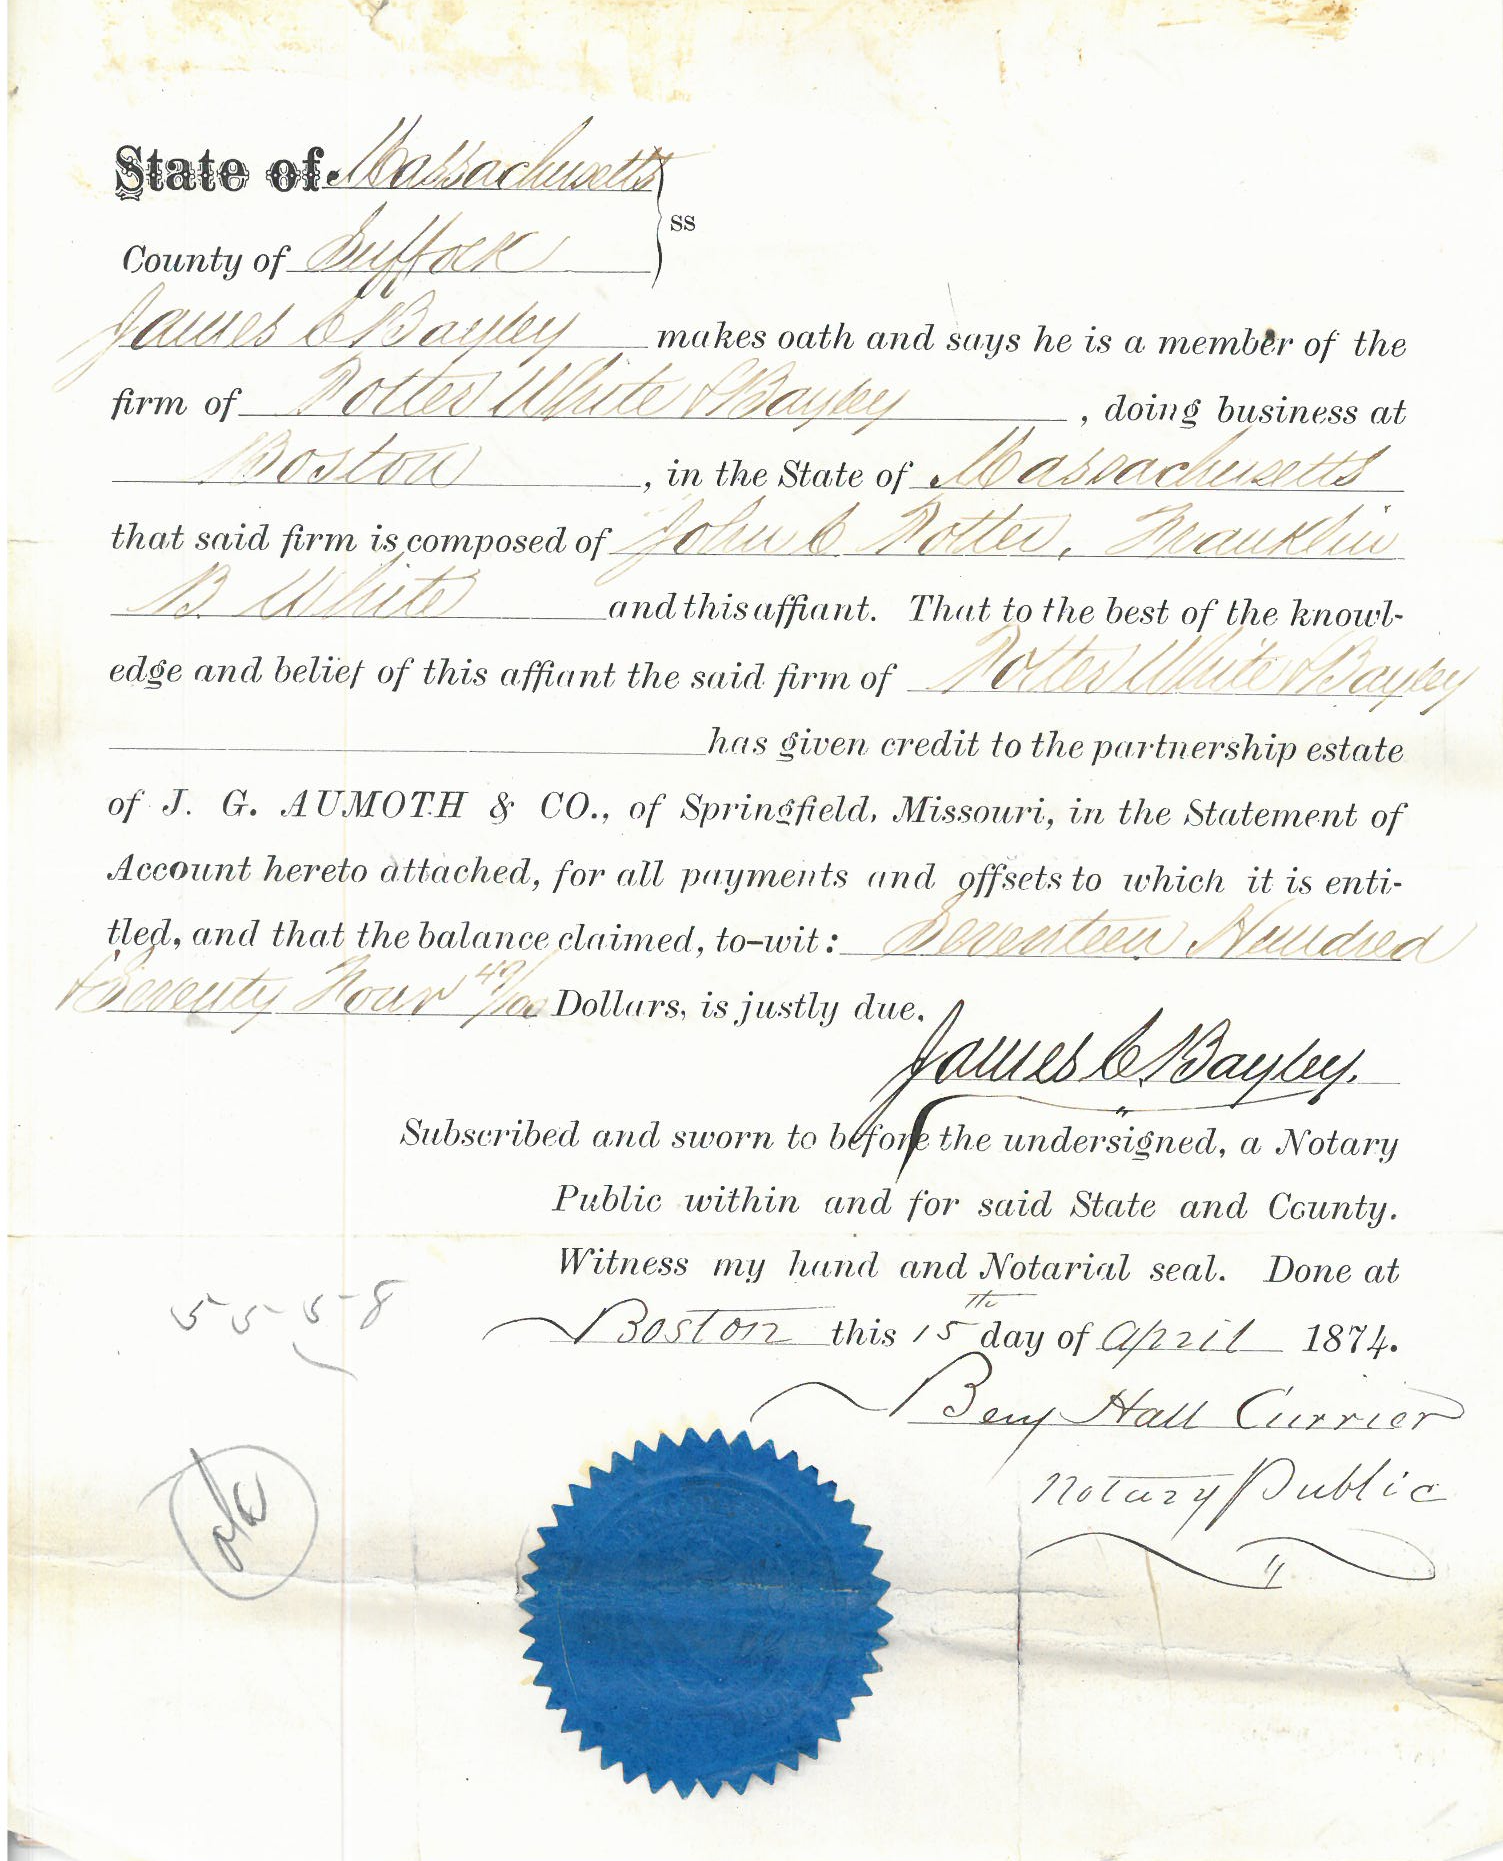 State of Massachusetts
ss
County of Suffock
James C Bayley makes oath and says he is a member of the
firm of Potter White & Bayley, doing business at
Boston, in the State of Massachusetts
that said firm is composed of John C Potter, Franklin
B. White and this affiant. That to the best of the knowl-
edge and belief of this affiant the said firm of Potter White & Bayley
has given credit to the partnership estate
of J. G. AUMOTH & CO., of Springfield, Missouri, in the Statement of
Account hereto attached, for all payments and offsets to which it is enti-
tled, and that the balance claimed, to-wit: Seventeen Hundred
& Seventy Four 47/100 Dollars, is justly due.
James C. Bayley.
Subscribed and sworn to before the undersigned, a Notary
Public within and for said State and County.
Witness my hand and Notarial seal. Done at
Boston this 15th day of April 1874.
Benj Hall Currier
Notary Public
5-5-5-8
ok